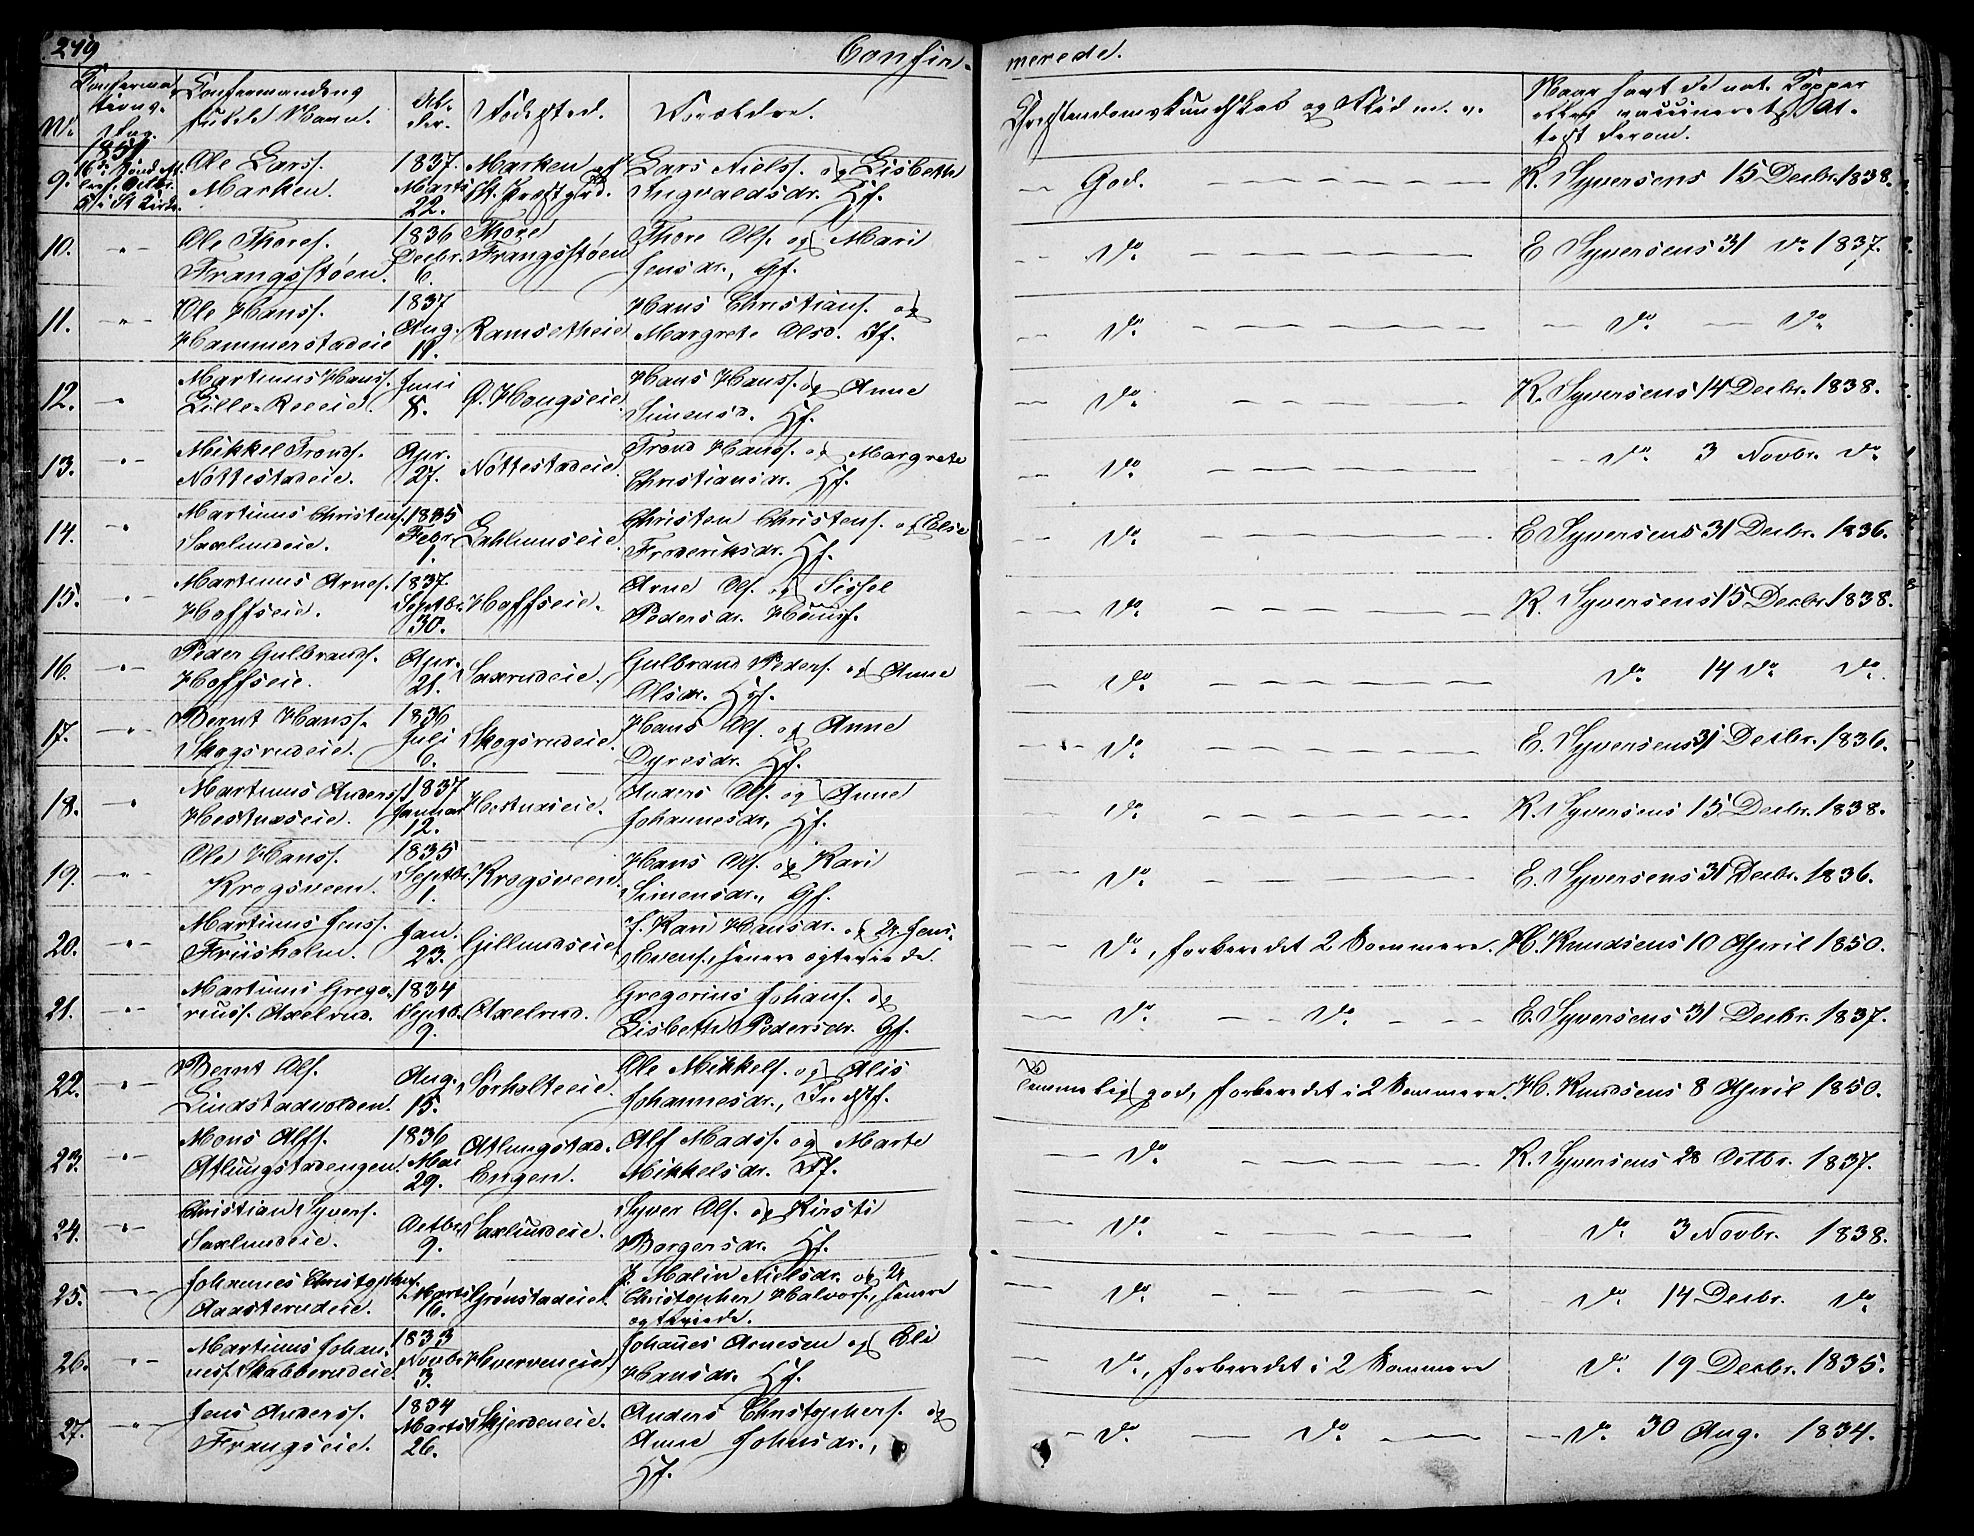 279
Confir-
merede.
No
Confirma-
tions-
dag.
Confirmandens
fulde Navn.
Al-
der.
Fødested.
Forældre.
Christendomskundskab og Flid m. v.
Naar havt de nat. Kopper
eller vaccineret, At-
test derom.
1851
9.
Ole Larss.
Marken.
1837.
Marts
22.
Marken
Lars Nielss. og Lisbeth
Ingvaldsdr. Hf.
God.
K. Syversens 15 Decbr. 1838.
10.
Ole Thoress.
Frangsstøen.
1836
Decbr.
6.
Thore
Frangsstøen
Thore Ols. og Mari
Jensdr., Gf.
Do.
E Syversens 31 Do 1837.
11.
Ole Hanss.
Hammerstadeie
1837
Aug.
11.
Ramsetheie
Hans Christians. og
Margrete Olsd. If.
Do.
Do Do
12.
Martinus Hanss.
Lille-Roeeie.
Juni
8.
Ø. Hougseie.
Hans Hanss. og Anne
Simensd. Hf.
Do.
K. Syversens 14 Decbr. 1838.
13.
Mikkel Tronds.
Nøttestadeie.
Apr.
27.
Nøttestadeie.
Trond Hanss. og Margrete
Christiansdr. Hf.
Do.
Do. 3 Novbr. Do.
14.
Martinus Christens.
Saxlundeie.
1835
Febr.
1.
Christen Christens. og Else
Frederiksdr. Hf.
Do.
E Syversens 31 Decbr. 1836.
15.
Martinus Arnes.
Hoffseie.
1837.
Septbr.
30.
Hoffseie.
Arne Ols. og Sissel
Pedersdr. Huusf.
Do.
K. Syversens 15 Decbr. 1838.
16.
Peder Gulbrands.
Hoffseie.
Apr.
21.
Saxrudeie.
Gulbrand Peders. og Anne
Olsdr. Hf.
Do.
Do. 14 Do. Do.
17.
Bernt Hanss.
Skogsrudeie.
1836
Juli
6.
Skogsrudeie.
Hans Ols. og Anne
Dyresdr. Hf.
Do.
E. Syversens 31 Decbr. 1836.
18.
Martinus Anderss.
Hestnæseie.
1837
Januar
12.
Hestnæseie.
Anders Ols. og Anne
Johannesdr., Hf.
Do.
K. Syversens 15 Decbr. 1838.
19.
Ole Hanss.
Krogsveen.
1835
Septbr.
1.
Krogsveen.
Hans Ols. og Kari
Simensdr., Gf.
Do.
E. Syversens 31 Decbr. 1836.
20.
Martinus Jenss.
Friisholm.
Jan.
23.
Gillundseie
P. Kari Hansdr. og U. Jens
Evens., senere egteviede.
Do., forberedet 2 Sommere.
H. Knudsens 10 April 1850.
21.
Martinus Grego-
riuss. Axelrud.
1834
Septbr.
9.
Axelrud.
Gregorius Johans. og
Lisbeth Pedersdr. Gf.
Do. Do.
E. Syversens 31 Decbr. 1837.
22.
Bernt Ols.
Lindstadvolden.
Aug.
15.
Sørholteeie.
Ole Mikkels. og Alis
Johannesdr., Indf.
Temmelig god, forberedet i 2 Sommere.
H. Knudsens 8 April 1850.
23.
Mons Alfs.
Atlungstadengen.
1836
Mai
29.
Atlungstad-
Engen.
Alf Madss. og Marte
Mikkelsdr. Ff.
Do.
K. Syversens 28 Octbr. 1837.
24.
Christian Syvers.
Saxlundeie.
Octbr.
9.
Saxlundeie.
Syver Ols. og Kirsti
Borgersdr. Hf.
Do.
Do 3 Novbr. 1838.
25.
Johannes Christophers.
Aaasterudeie.
Marts
16.
Grønstadeie.
P. Malin Nielsdr. og U.
Christopher Halvors., senere
egteviede.
Do.
Do 14 Decbr. Do
26.
Martinus Johan-
ness. Skabberudeie.
1833
Novbr.
3.
Hverveneie
Johanes Arnesen og Eli
Hansdr. Hf.
Do., forberedet i 2 Sommere
Do. 19 Decbr. 1835.
27.
Jens Anderss.
Frangseie.
1834
Marts
26.
Skjerdeneie.
Anders Christophers. og
Anne Johnsdr.,
Hf.
Do. Do
Do. 30 Aug. 1834.